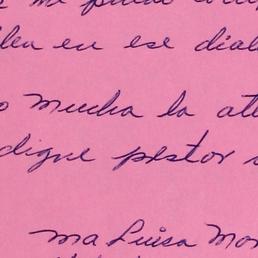 me puede
en ese dial
mucha la at
digne pestor
Ma Luisa Mor